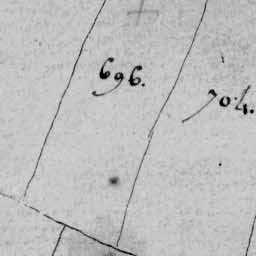 696.
704.